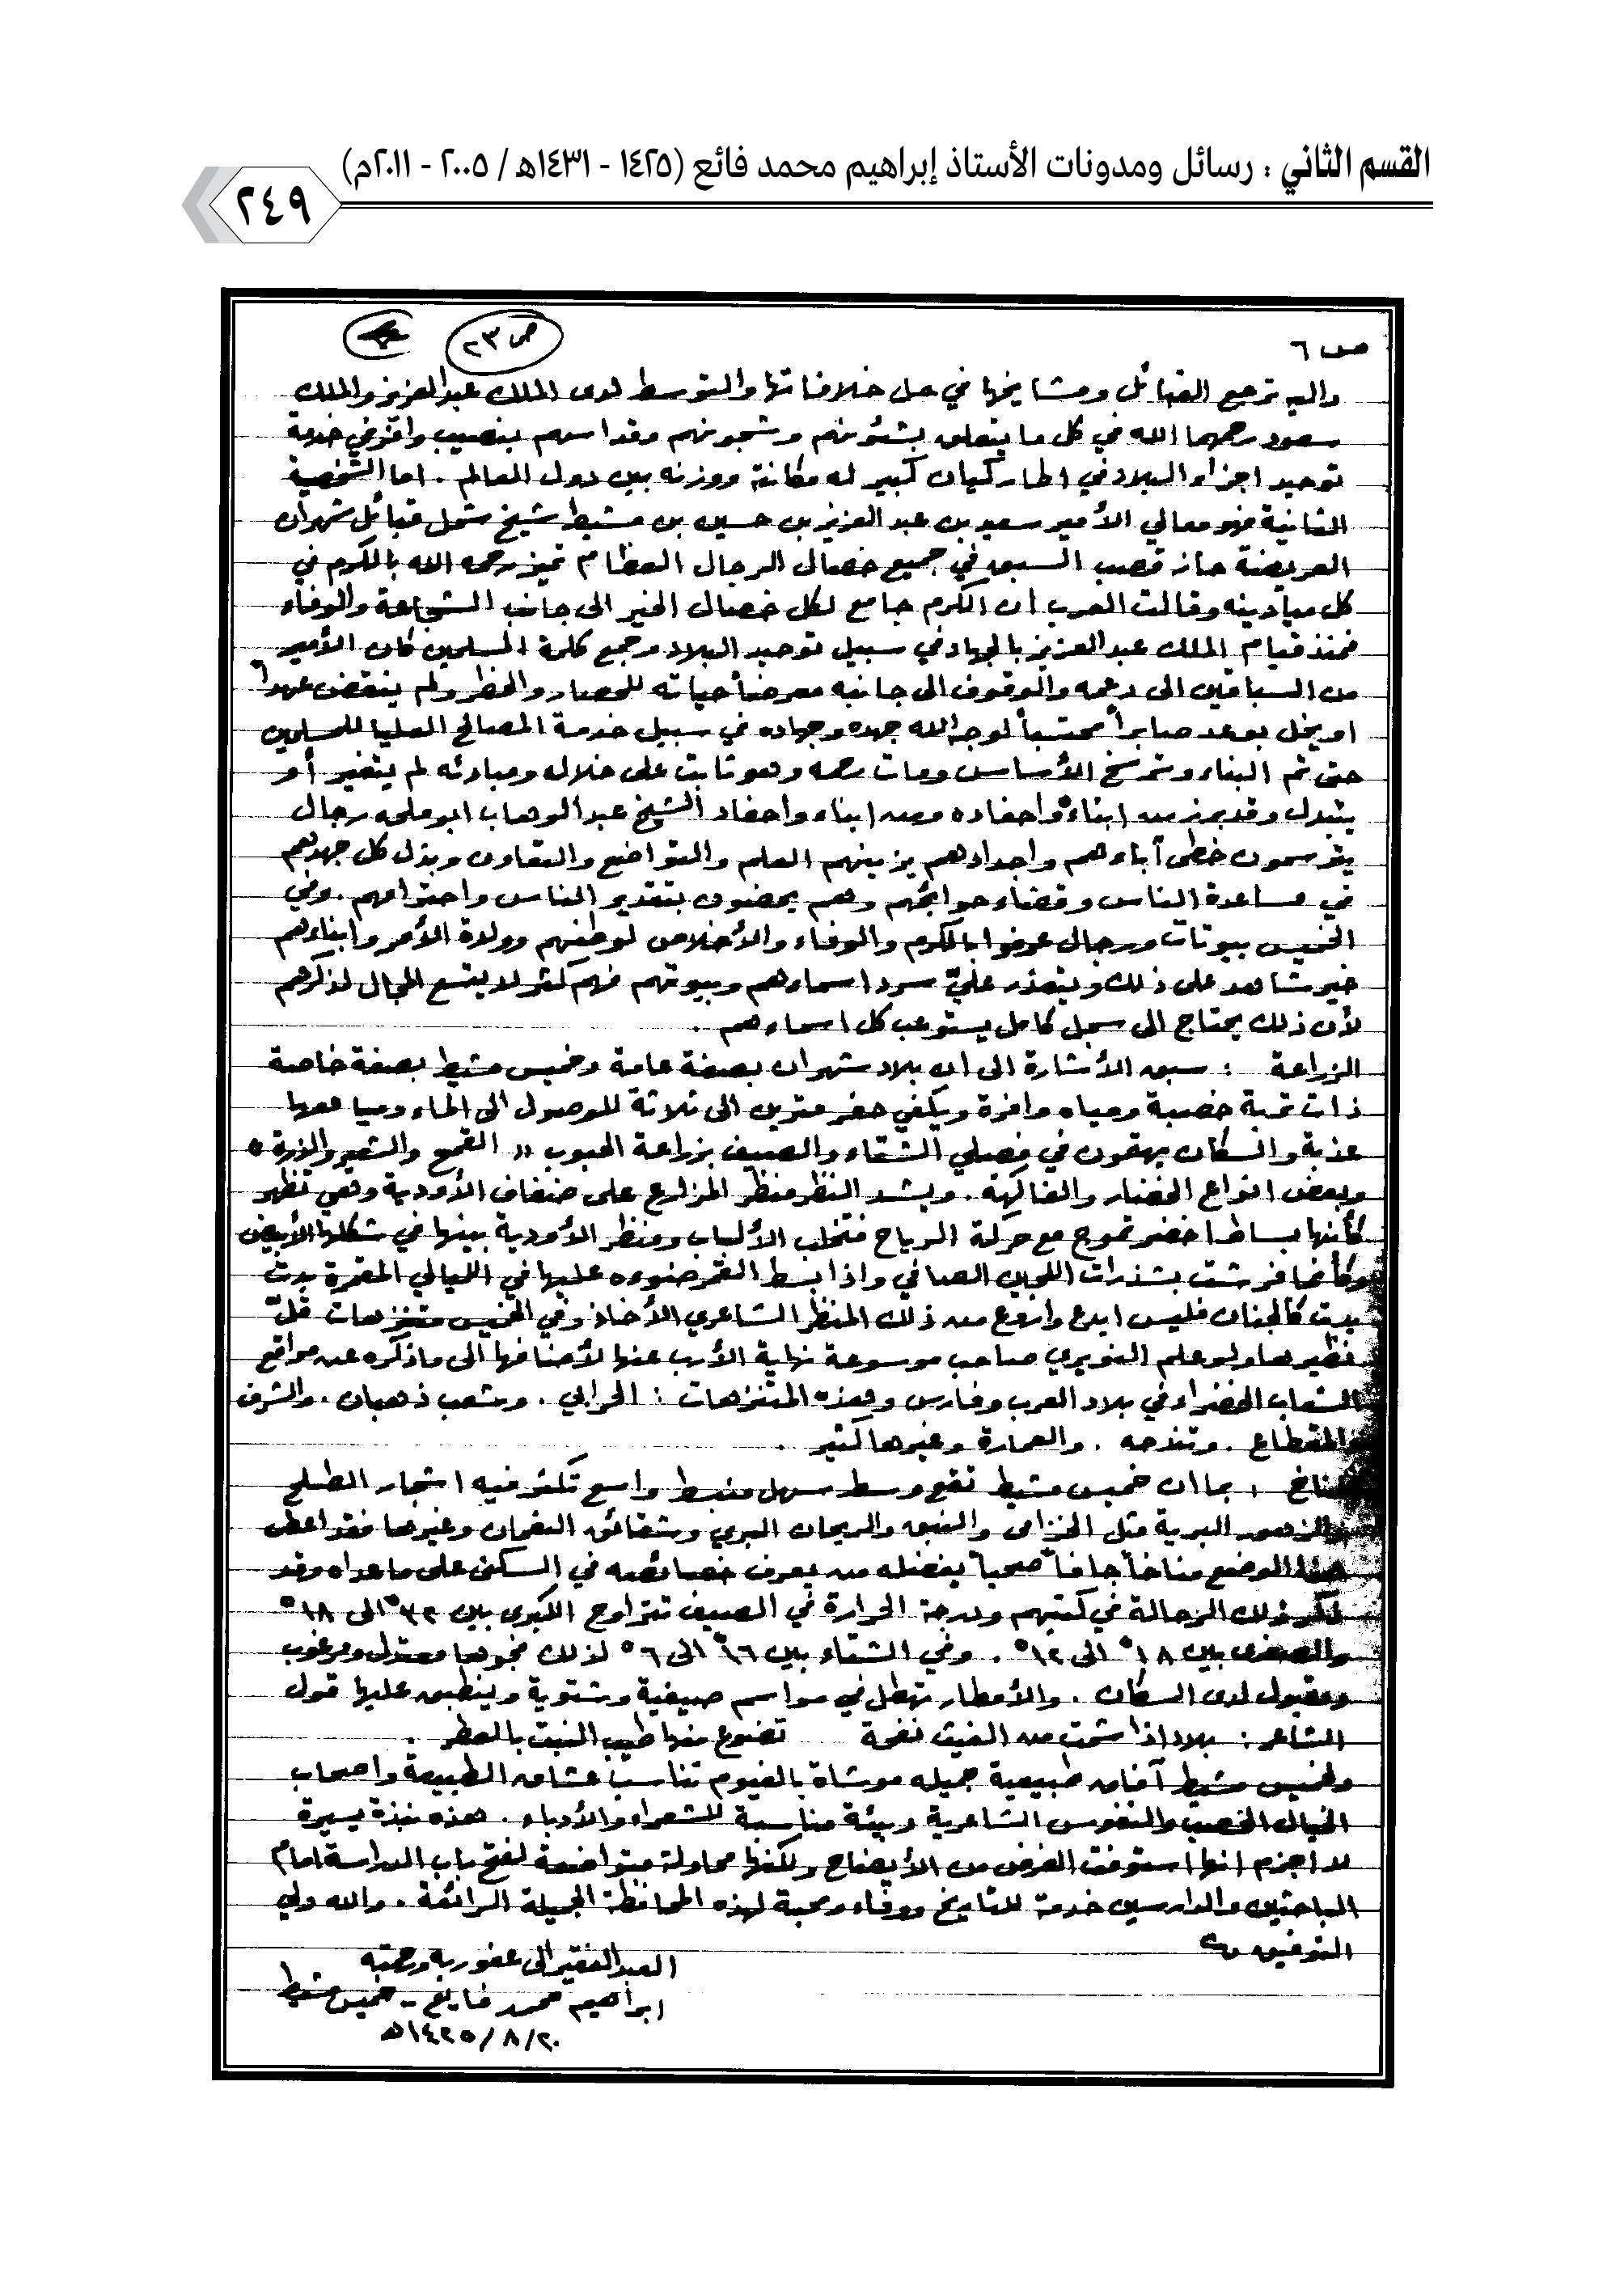 القسم الثاني : رسائل ومدونات الأستاذ إبراهيم محمد فائع (١٤٢٥ - ١٤٣١هـ / ٢٠٠٥ - ٢٠١١م)
٢٤٩
ص ٦
ص ٢٣
واليه ترجع القبائل ومشايخها في حل خلافاتها والتوسط لدى الملك عبدالعزيز والملك
سعود رحمهما الله في كل ما يتعلق بشئونهم وشجونهم وقد اسهم بنصيب وافر في خدمة
توحيد اجزاء البلاد في اطار كيان كبير له مكانته ووزنه بين دول العالم . اما الشخصية
الثانية فهو معالي الأمير سعيد بن عبد العزيز بن حسين بن مشيط شيخ شمل قبائل شهران
العريضة حاز قصب السبق في جميع خصال الرجال العظام تميز رحمه الله بالكرم في
كل ميادينه وقالت العرب ان الكرم جامع لكل خصال الخير الى جانب الشجاعة والوفاء
فمنذ قيام الملك عبدالعزيز بالجهاد في سبيل توحيد البلاد وجمع كلمة المسلمين كان الأمير
من السباقين الى دعمه والوقوف الى جانبه معرضاً حياته للحصار والخطر ولم ينقض عهداً
او يخل بوعد صابراً محتسباً لوجه الله جهده وجهاده في سبيل خدمة المصالح العليا للمسلمين
حتى تم البناء وترسخ الأساس ومات رحمه وهو ثابت على خلاله ومبادئه لم يتغير أو
يتبدل وقد برز من ابناءه واحفاده ومن ابناء واحفاد الشيخ عبدالوهاب ابوملحه رجال
يترسمون خطى آباءهم واجدادهم يزينهم العلم والتواضع والتعاون وبذل كل جهدهم
في مساعدة الناس وقضاء حوائجهم وهم يحضون بتقدير الناس واحترامهم . وفي
الخميس بيوتات ورجال عرفوا بالكرم والوفاء والأخلاص لوطنهم وولاة الأمر وابناءهم
خير شاهد على ذلك ويتعذر عليّ سرد اسماءهم وبيوتهم فهم كثر لا يتسع المجال لذكرهم
لأن ذلك يحتاج الى سجل كامل يستوعب كل اسماءهم .
الزراعة : سبق الأشارة الى ان بلاد شهران بصفة عامة وخميس مشيط بصفة خاصة
ذات تربة خصبة ومياه وافرة ويكفي حفر مترين الى ثلاثة للوصول الى الماء ومياهها
عذبة والسكان يهتمون في فصلي الشتاء والصيف بزراعة الحبوب " القمح والشعير والذرة "
وبعض انواع الخضار والفاكهة . ويشد النظر منظر المزارع على ضفاف الأودية وهي تظهر
كأنها بساط اخضر تموج مع حركة الرياح فتخلب الألباب ومنظر الأودية بينها في شكلها الأبيض
وكأنما فرشت بشذرات اللجين الصافي واذا بسط القمر ضوءه عليها في الليالي المقمرة بدت
بدت كالجنان فليس ابدع واروع من ذلك المنظر الشاعري الأخاذ وفي الخميس متنزهات قلّ
نظيرها ولو علم النويري صاحب موسوعة نهاية الأرب عنها لأضافها الى ماذكره عن مواقع
الشعاب الخضراء في بلاد العرب وفارس وهذه المتنزهات : الحرابي . وشعب ذهبان . والشرف
والمقطاع . وتندحه . والعمارة وغيرها كثير .
المناخ : بما ان خميس مشيط تقع وسط سهل منبسط واسع تكثر فيه اشجار الطلح
والزهور البرية مثل الخزامى والنبق والريحان البري وشقائق النعمان وغيرها فقد اعطى
هذا الوضع مناخاً جافاً صحياً يفضله من يعرف خصائصه في السكنى على ماعداه وقد
ذكر ذلك الرحالة في كتبهم ودرجة الحرارة في الصيف تتراوح الكبرى بين ٣٢° الى ١٨°
والصغرى بين ١٨° الى ١٢° . وفي الشتاء بين ١٦° الى ٦° لذلك فجوها معتدل ومرغوب
ومقبول لدى السكان . والأمطار تهطل في مواسم صيفية وشتوية وينطبق عليها قول
الشاعر : بلاد اذا شمت من الغيث نفحة تضوع منها طيب النبت بالعطر .
ولخميس مشيط آفاق طبيعية جميله موشاة بالغيوم تناسب عشاق الطبيعة واصحاب
الخيال الخصب والنفوس الشاعرية وبيئة مناسبة للشعراء والأدباء . هذه نبذة يسيرة
لا اجزم انها استوفت الغرض من الأيضاح ولكنها محاولة متواضعة لفتح باب الدراسة امام
الباحثين والدارسين خدمة للتاريخ ووفاء ومحبة لهذه المحافظة الجميلة الرائعة . والله ولي
التوفيق
العبد الفقير الى عفو ربه ورحمته
ابراهيم محمد فايع - خميس مشيط
٢٠/٨/١٤٢٥هـ